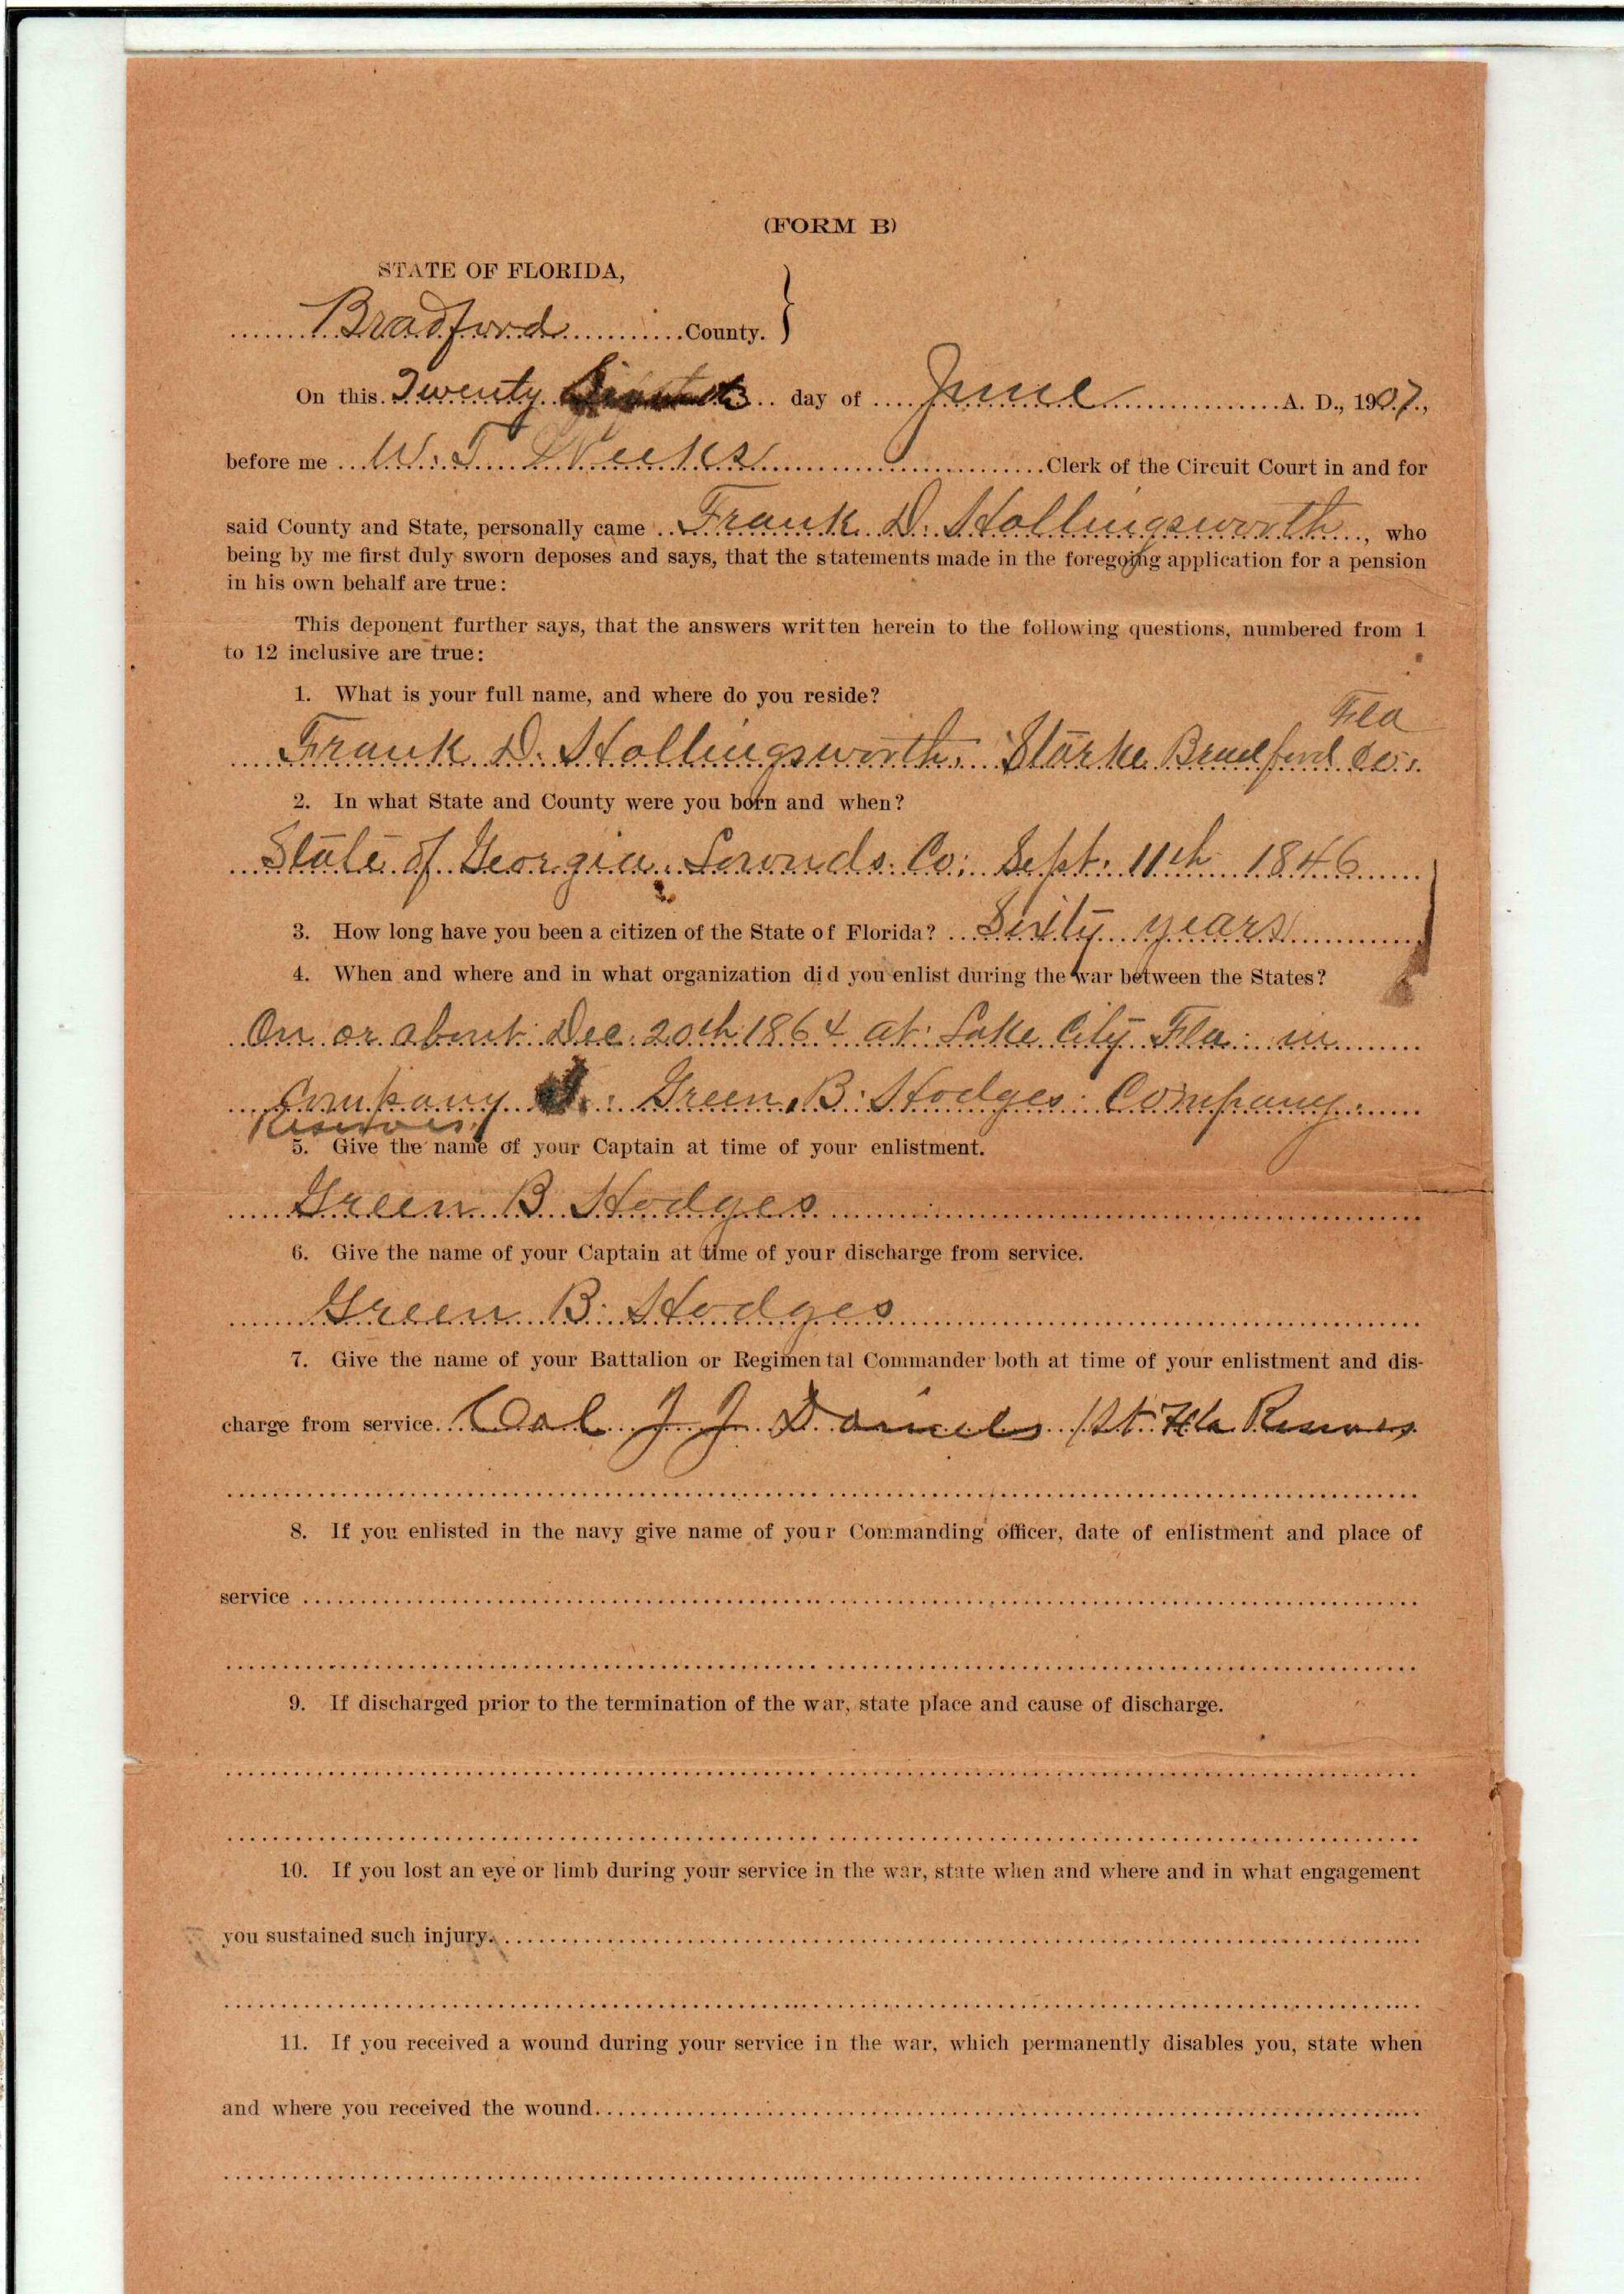 (FORM B)
STATE OF FLORIDA,
Bradford County. }
On this Twenty day of June A. D., 1907,
before me W. T. Weeks Clerk of the Circuit Court in and for
said County and State, personally came Frank D. Hollingsworth, who
being by me first duly sworn deposes and says, that the statements made in the foregoing application for a pension
in his own behalf are true:
This deponent further says, that the answers written herein to the following questions, numbered from 1
to 12 inclusive are true:
1. What is your full name, and where do you reside?
Fla
Frank D. Hollingsworth. Starke Bradford Co.
2. In what State and County were you born and when?
State of Georgia. Lownds Co; Sept. 11th 1846
3. How long have you been a citizen of the State of Florida? Sixty years
4. When and where and in what organization did you enlist during the war between the States?
On or about Dec. 20th 1864 at Lake City Fla in
Company Green B. Hodges Company
Reserves
5. Give the name of your Captain at time of your enlistment.
Green B Hodges
6. Give the name of your Captain at time of your discharge from service.
Green B. Hodges
7. Give the name of your Battalion or Regimental Commander both at time of your enlistment and dis-
charge from service. Col J J Daniels 1st Fla Reserves
8. If you enlisted in the navy give name of your Commanding officer, date of enlistment and place of
service
9. If discharged prior to the termination of the war, state place and cause of discharge.
10. If you lost an eye or limb during your service in the war, state when and where and in what engagement
you sustained such injury.
11. If you received a wound during your service in the war, which permanently disables you, state when
and where you received the wound.